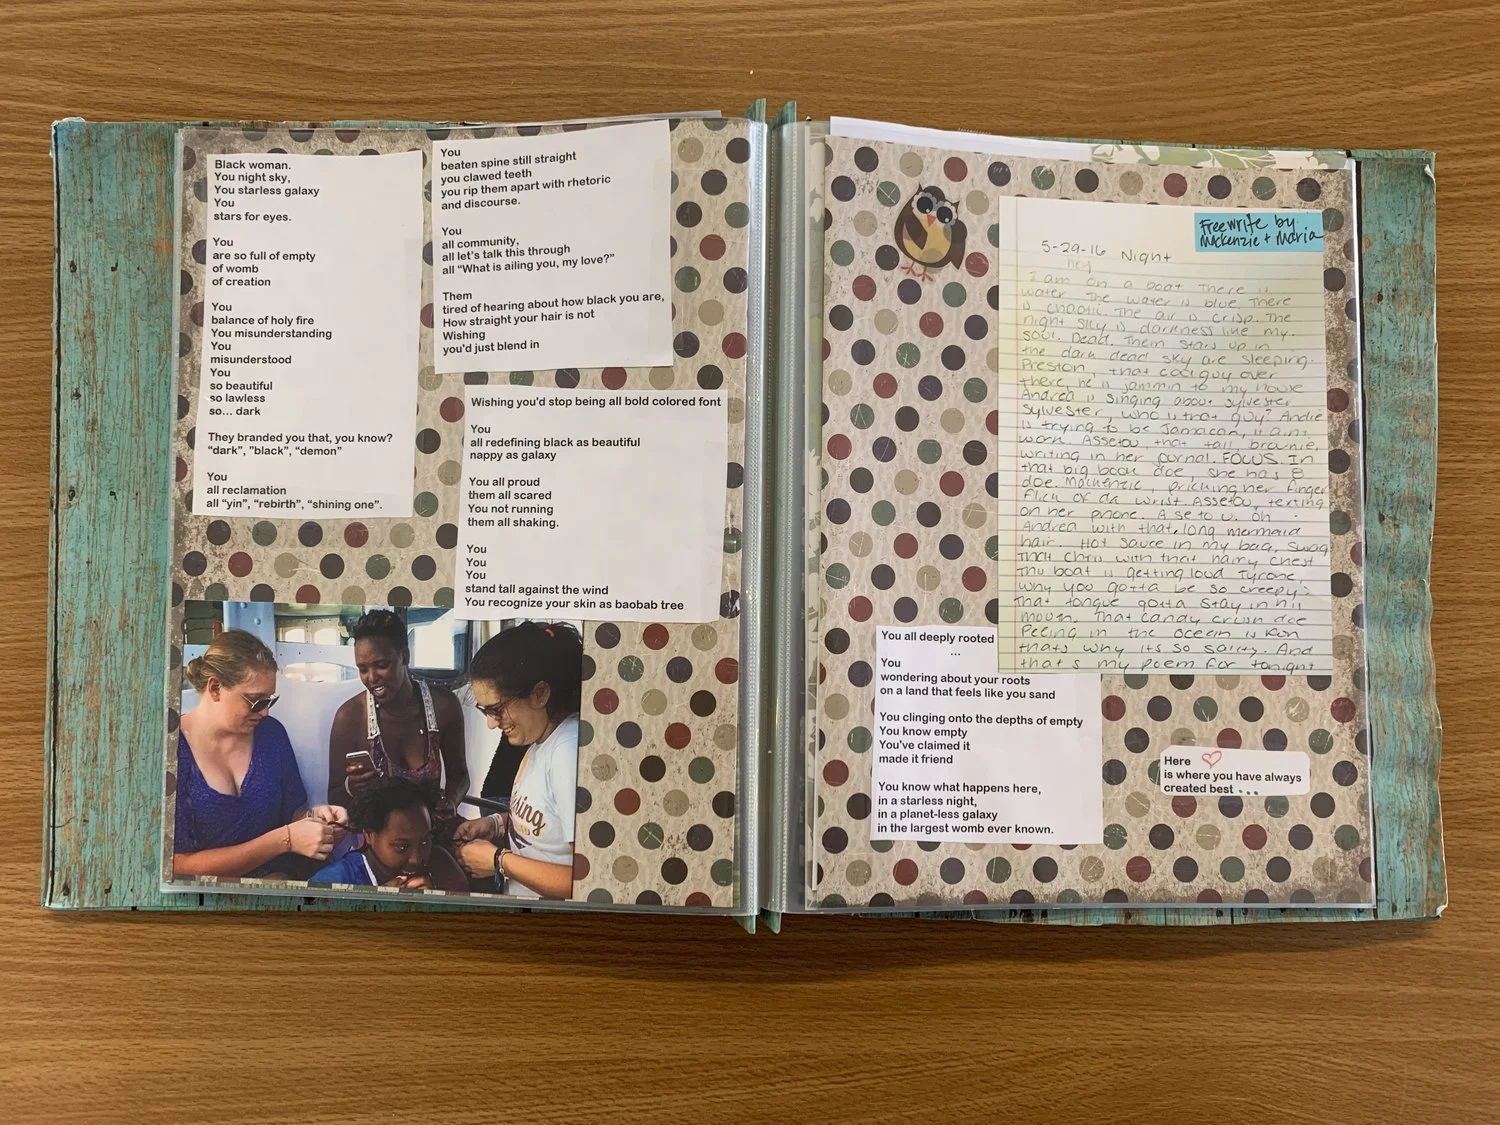 Black woman.
You night sky,
You starless galaxy
You
stars for eyes.
You
are so full of empty
of womb
of creation
You
balance of holy fire
You misunderstanding
You
misunderstood
You
so beautiful
so lawless
so... dark
They branded you that, you know?
"dark", "black", "demon"
You
all reclamation
all "yin", "rebirth", "shining one".
You
beaten spine still straight
you clawed teeth
you rip them apart with rhetoric
and discourse.
You
all community,
all let's talk this through
all "What is ailing you, my love?"
Them
tired of hearing about how black you are,
How straight your hair is not
Wishing
you'd just blend in
Wishing you'd stop being all bold colored font
You
all redefining black as beautiful
nappy as galaxy
You all proud
them all scared
You not running
them all shaking.
You
You
You
stand tall against the wind
You recognize your skin as baobab tree
sing
You all deeply rooted
...
You
wondering about your roots
on a land that feels like you sand
You clinging onto the depths of empty
You know empty
You've claimed it
made it friend
You know what happens here,
in a starless night,
in a planet-less galaxy
in the largest womb ever known.
Freewrite by
Mackenzie + Maria
5-29-16 Night
hey
I am on a boat There is
water The water is blue There
is chaotic The air is crisp. The
night sky is darkness like my
soul. Dead. Them stars up in
the dark dead sky are sleeping.
Preston, that cool guy over
there, he is jammin to my house
Andrea is singing about sylvester
sylvester, who is that guy? Andre
is trying to be Jamacan, it aint
work. Assetou, that tall brownie,
writing in her jurnal. FOCUS. In
that big book doe she has 8
doe. Mackenzie, pricking her finger
Flick of da wrist. Assetou, texting
on her phone. A se to u. Oh
Andrea with that long mermaid
hair. Hot sauce in my bag, swag
That Chris with that hairy chest
This boat is getting loud Tyrone,
why you gotta be so creepy?
That tongue gotta stay in his
mouth. That candy crush doe
Peeing in the ocean is fun
thats why its so salty. And
that's my poem for tonight
Here
is where you have always
created best ...